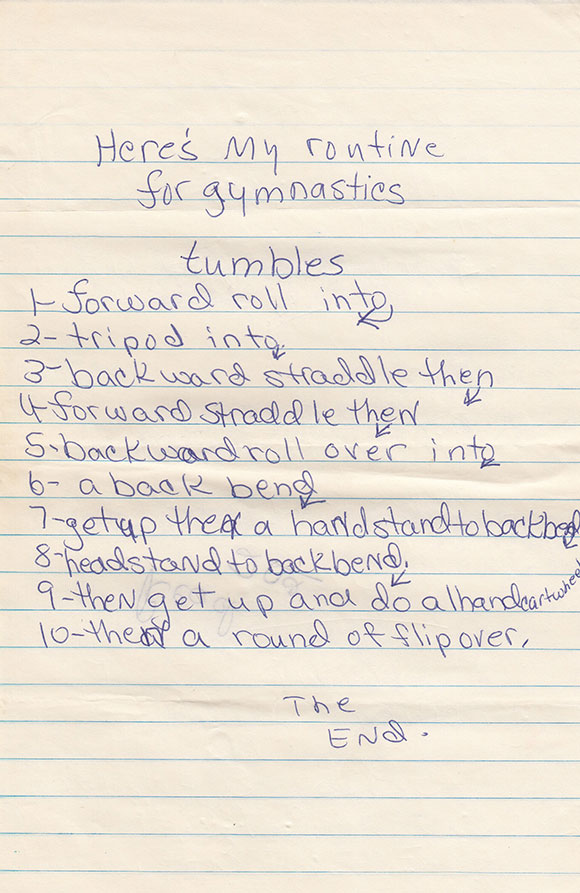 Here's My routine
for gymnastics
tumbles
1-forward roll into
2-tripod into
3-backward straddle then
4-forward straddle then
5-backward roll over into
6- a back bend
7-get up then a handstand to backbend
8-headstand to backbend.
9-then get up and do a 1 hand cartwheel
10-then a round of flip over.
The
End.